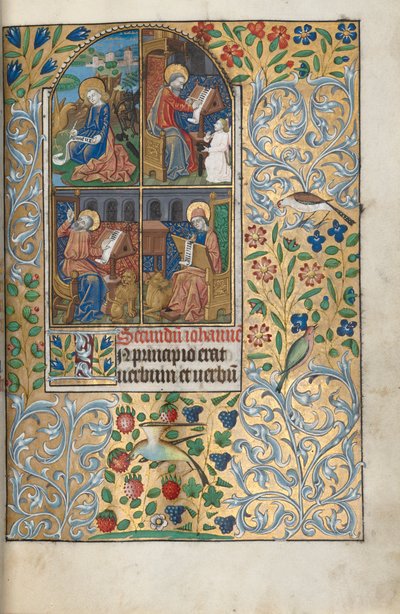 Secundū iohannē
In principio erat
uerbum et uerbū